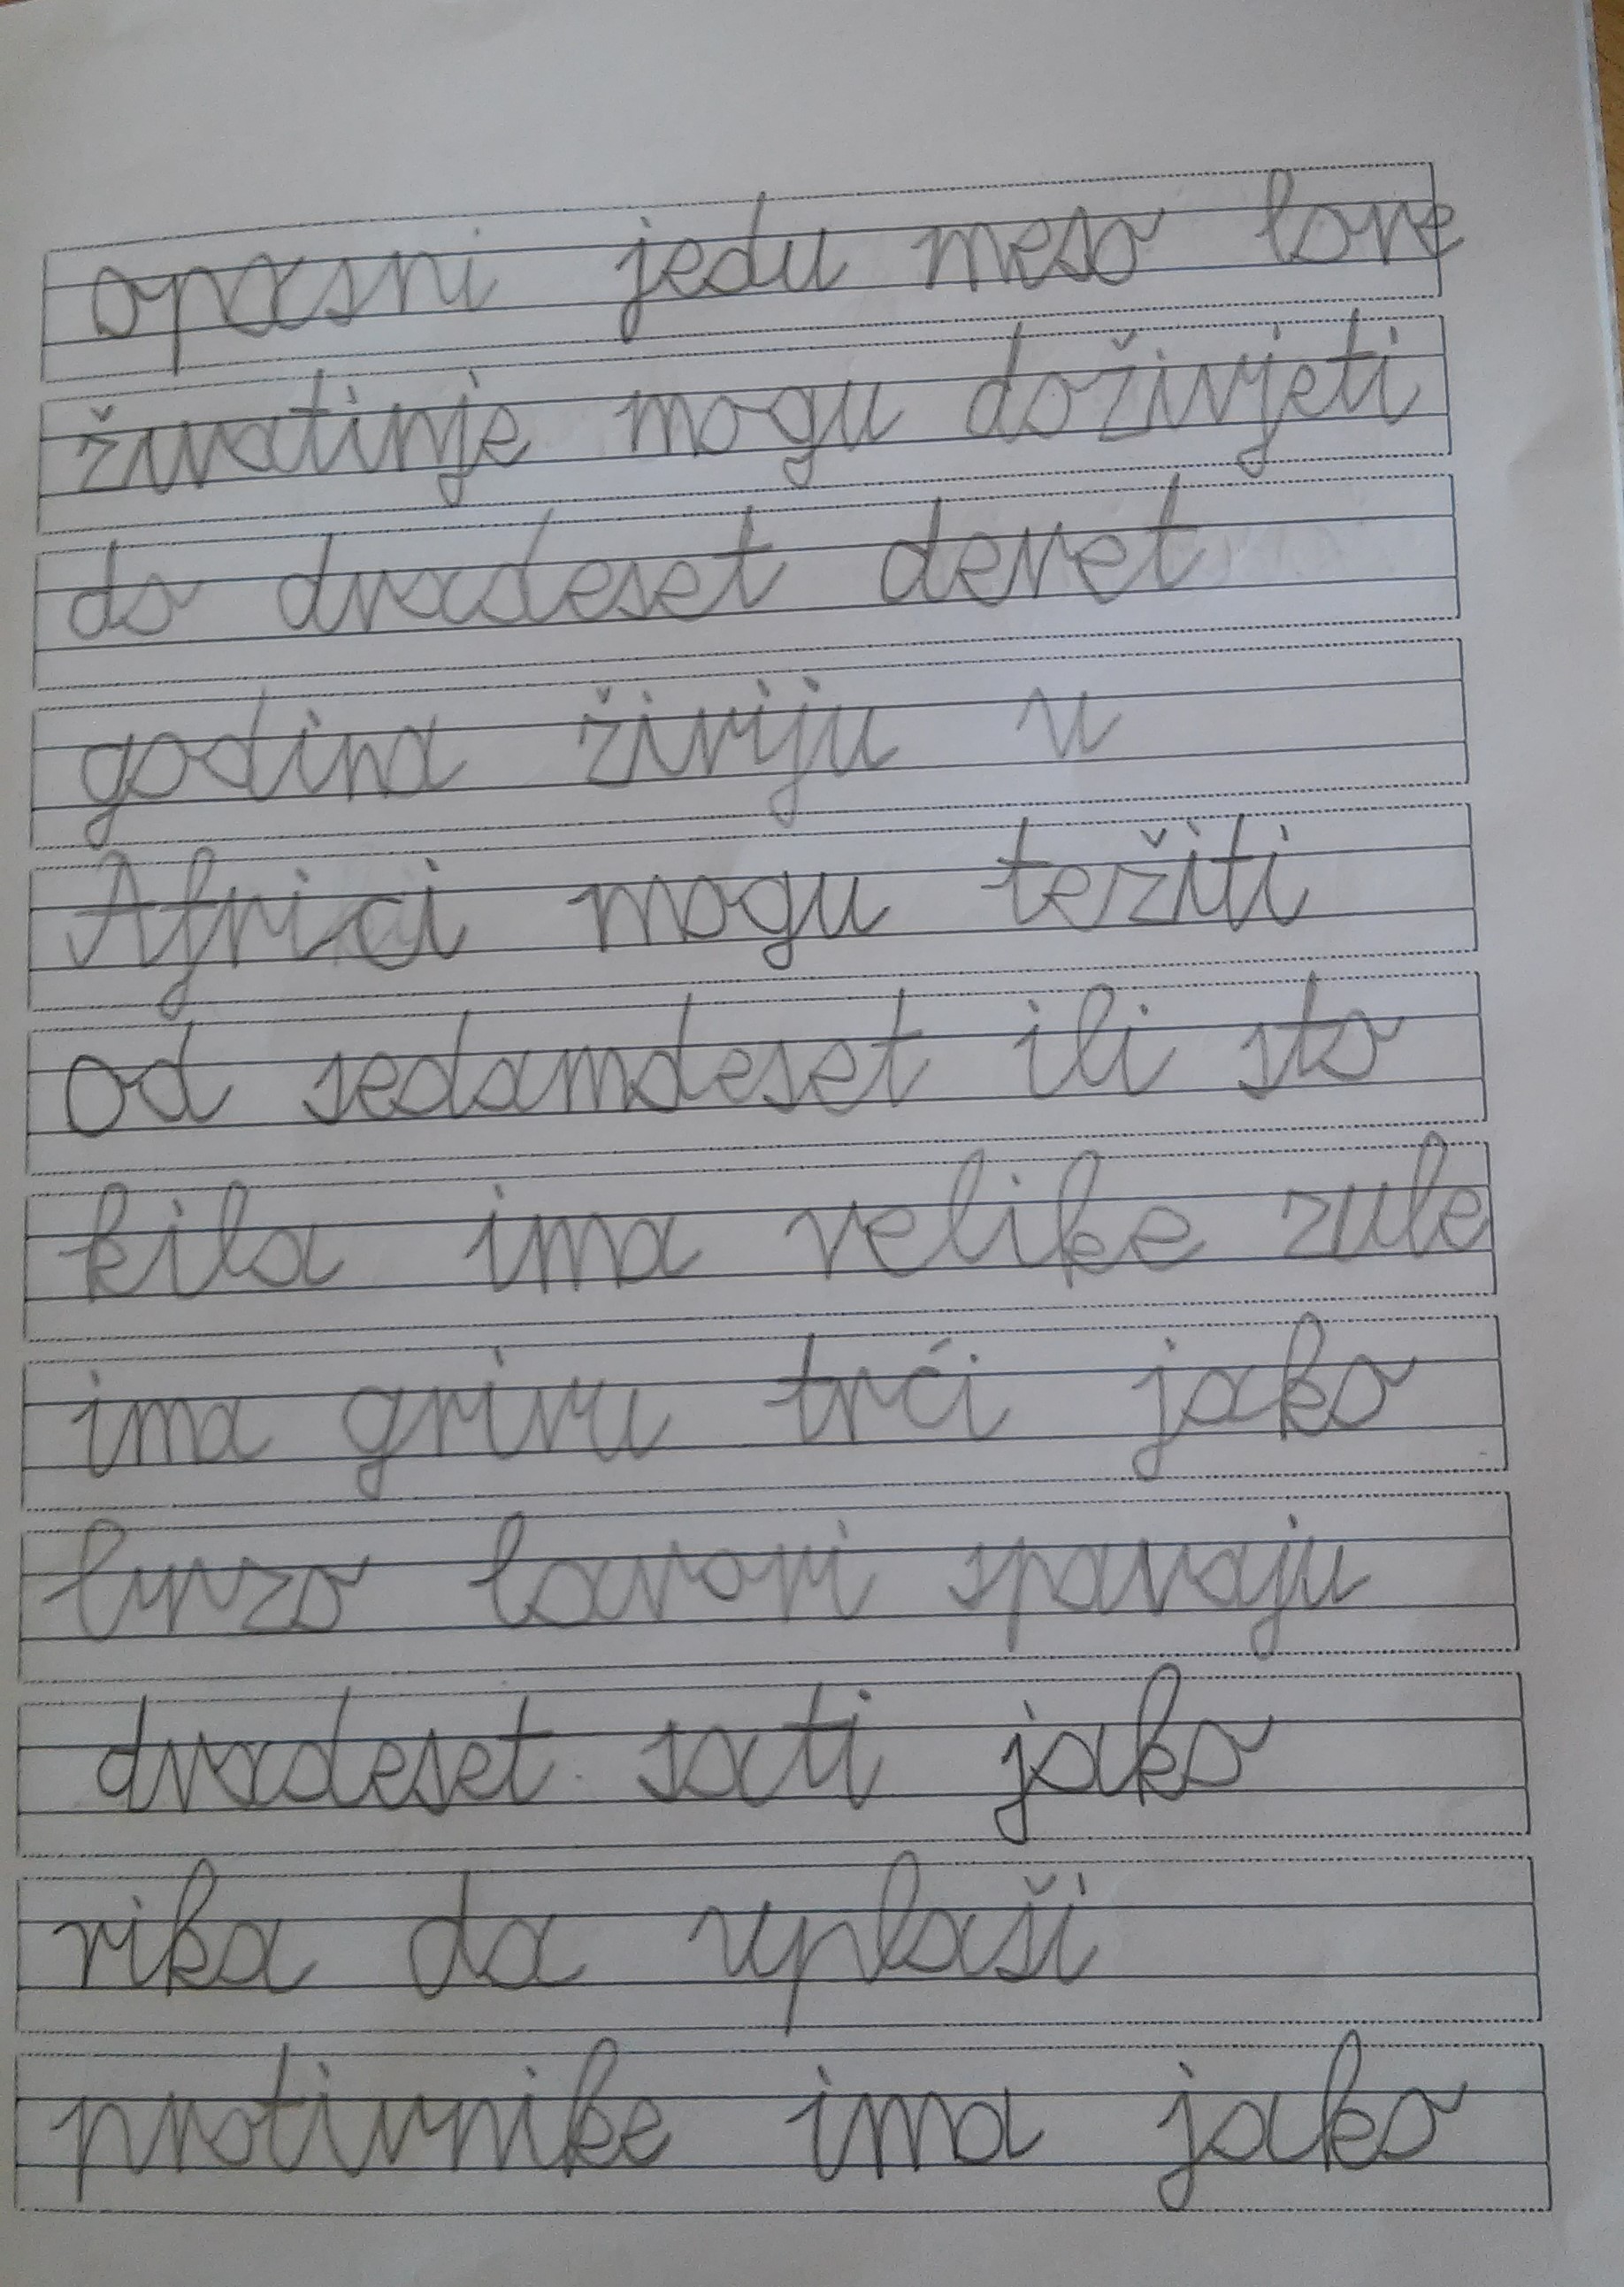 opasni jedu meso love
životinje mogu doživjeti
do dvadeset devet
godina živiju u
Africi mogu težiti
od sedamdeset ili sto
kila ima velike zube
ima grivu trći jako
brzo lavovi spavaju
dvadeset sati jako
rika da uplaši
protivnike ima jako